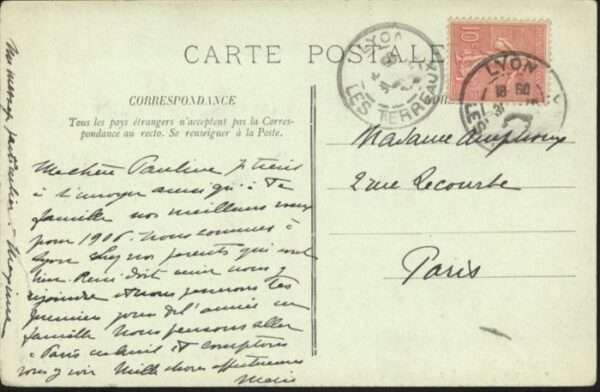 CARTE POSTALE
CORRESPONDANCE
Tous les pays étrangers n'acceptent pas la Corres-
pondance au recto. Se renseigner à la Poste.
Ma chère Pauline je tiens
à t'envoyer ainsi qu'à ta
famille nos meilleurs vœux
pour 1906. Nous sommes à
Lyon chez nos parents qui vont
bien. René doit venir nous y
rejoindre et nous passerons les
premiers jours de l'année en
famille. Nous pensons aller
à Paris et comptons
vous y voir. Mille choses affectueuses
10
LYON
LES TERREAUX
LYON
LES
Madame
2 rue Lecourbe
Paris